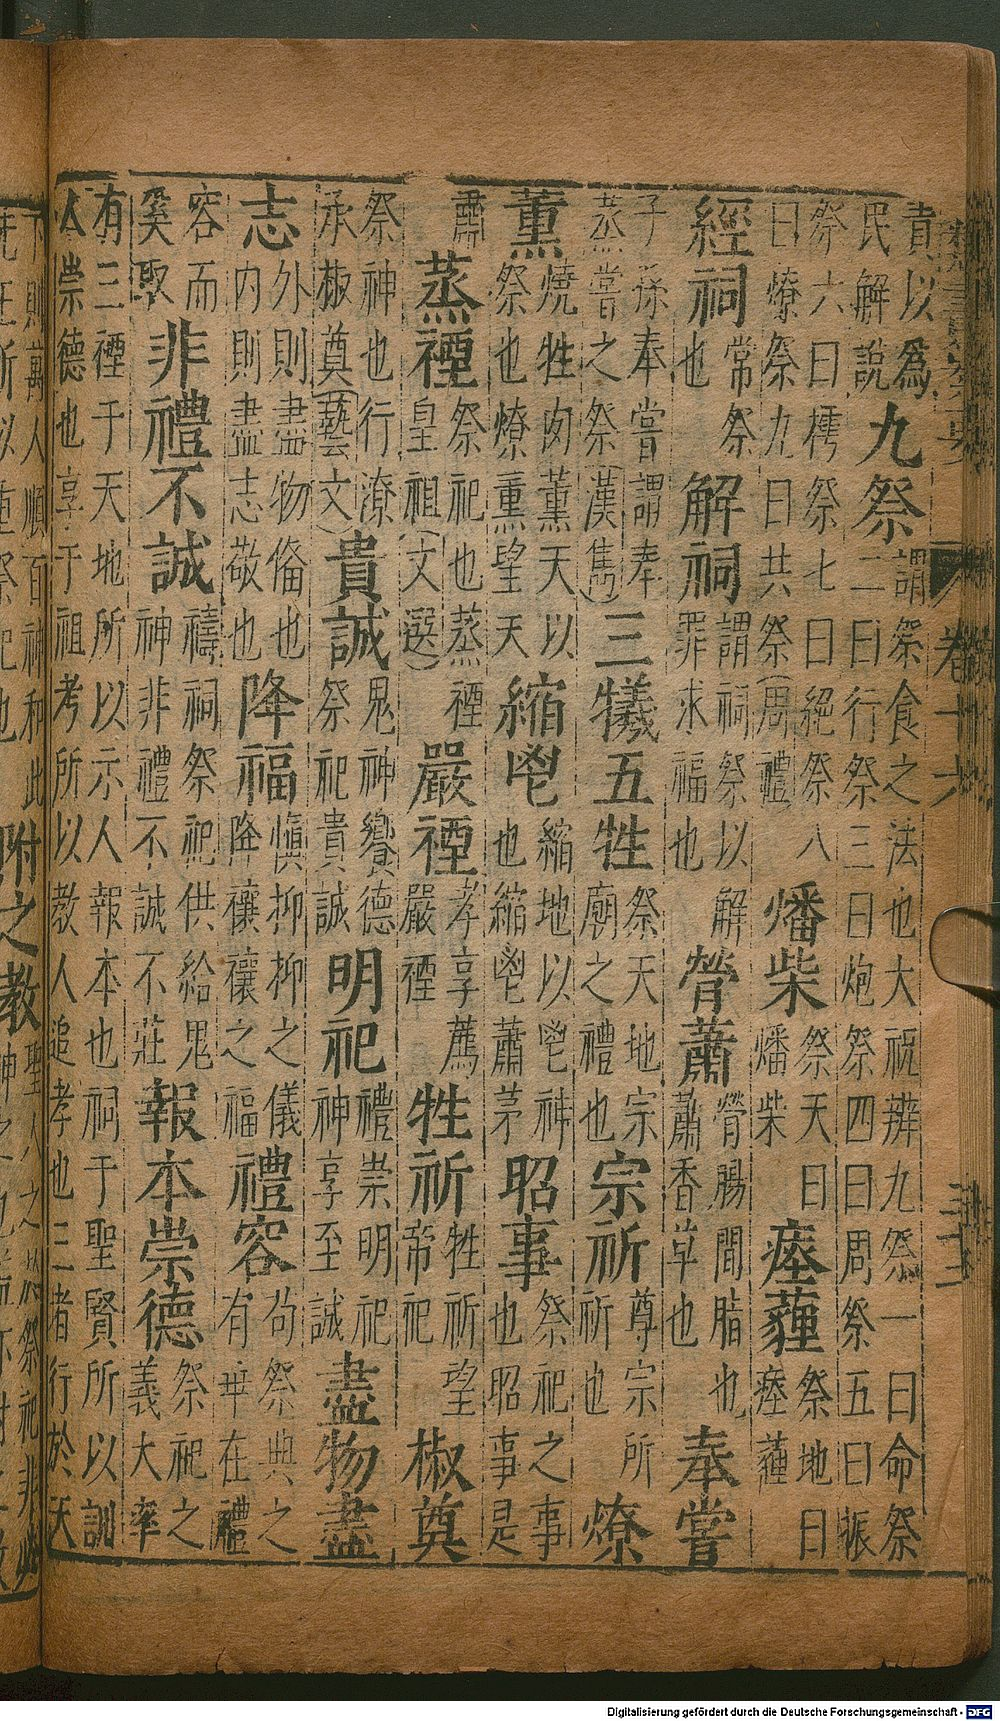 責以為民解說九祭謂祭食之法也大祝辨九祭一曰命祭二曰行祭三曰炮祭四曰周祭五曰振
祭六曰擩祭七曰絕祭八曰燎祭九曰共祭(周禮)燔柴祭天曰燔柴瘞薶祭地曰瘞薶
經祠常祭也解祠謂祠祭以解罪求福也膋蕭膋腸間脂也蕭香草也奉嘗
子孫奉嘗謂奉蒸嘗之祭(漢雋)三犧五牲祭天地宗廟之禮也宗祈尊宗所祈也燎
薰燒牲肉薰天以祭也燎熏望天縮鬯縮地以鬯神也縮鬯蕭茅昭事祭祀之事也昭事是
肅蒸禋祭祀也蒸禋皇祖(文選)嚴禋孝享薦嚴禋牲祈牲祈望帝祀椒奠
祭神也行潦承椒奠(藝文)貴誠鬼神饗德祭祀貴誠明祀禮崇明祀神享至誠盡物盡
志外則盡物俻也內則盡志敬也降福慎抑抑之儀降穰穰之福禮容苟祭典之有乖在禮
容而奚取非禮不誠禱祠祭祀供給鬼神非禮不誠不莊報本崇德祭祀之義大率
有三禋于天地所以示人報本也祠于聖賢所以訓人崇德也享于祖考所以教人追孝也三者行於天
下則萬人順百神和此
附之教
卷十六
Digitalisierung gefördert durch die Deutsche Forschungsgemeinschaft - DFG